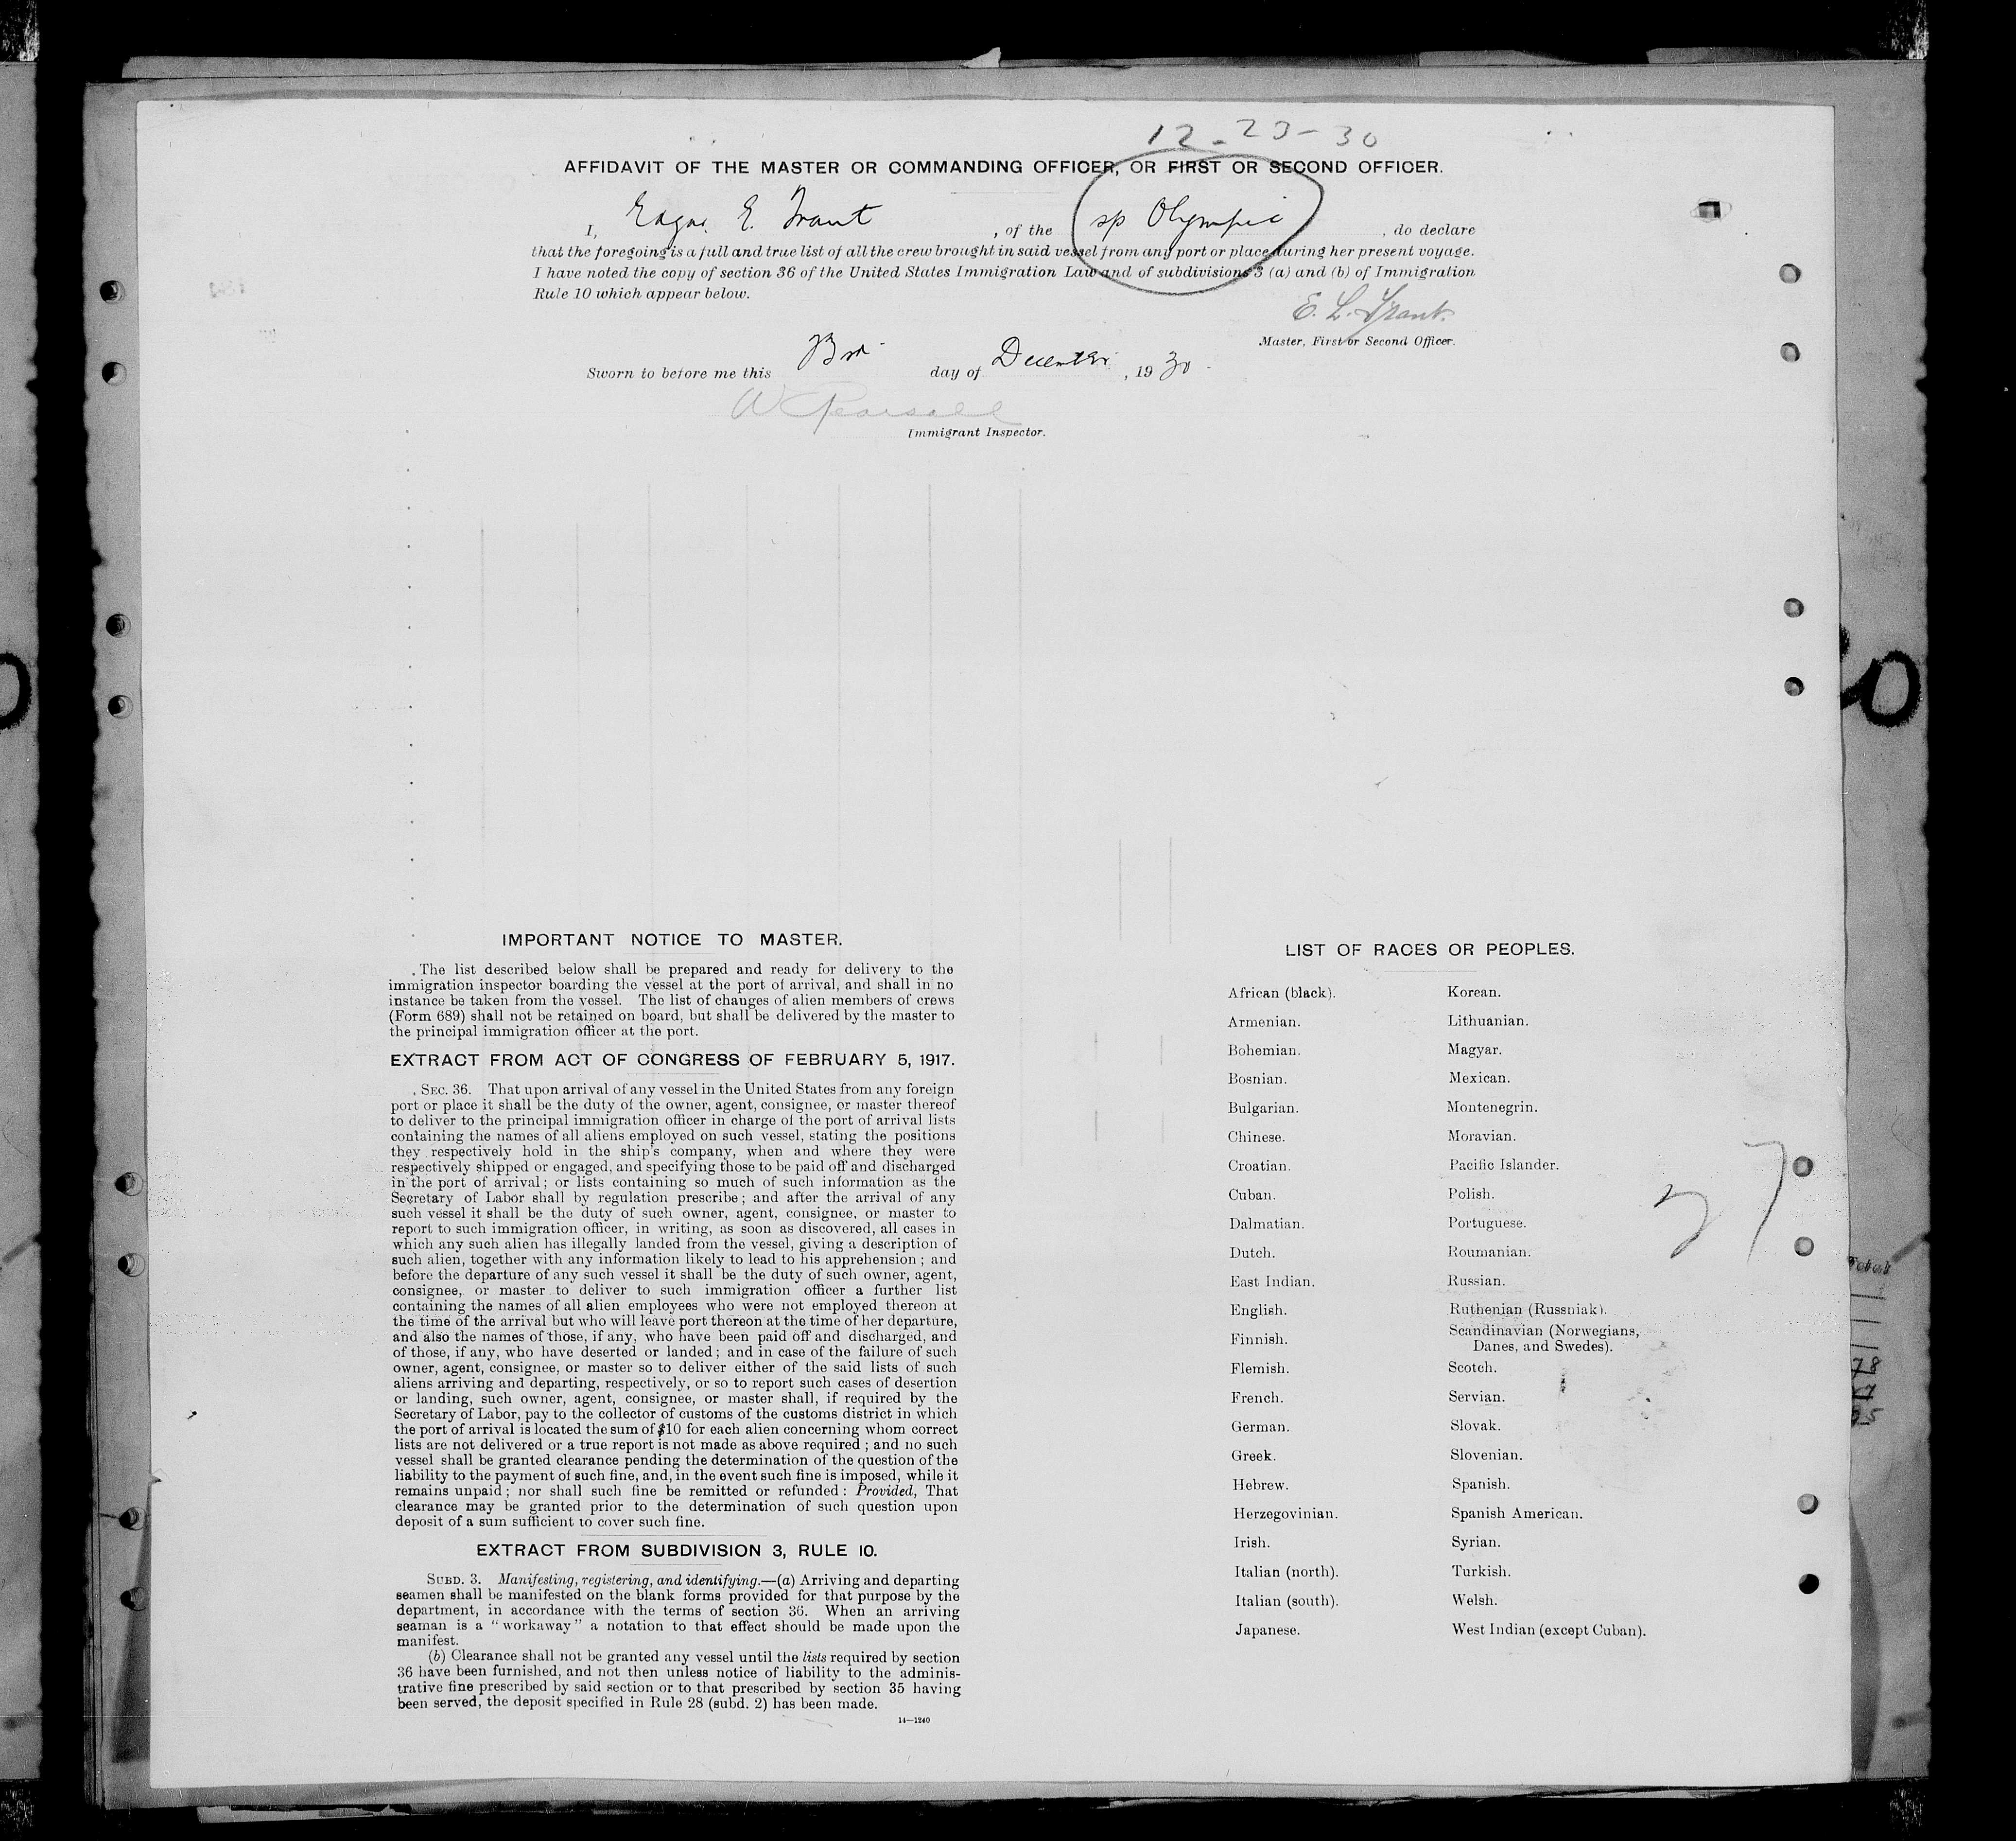 12-23-30
AFFIDAVIT OF THE MASTER OR COMMANDING OFFICER, OR FIRST OR SECOND OFFICER.
I, Edgar E. Trant, of the sp Olympic, do declare
that the foregoing is a full and true list of all the crew brought in said vessel from any port or place during her present voyage.
I have noted the copy of section 36 of the United States Immigration Law and of subdivisions 3 (a) and (b) of Immigration
Rule 10 which appear below.
E. L. Trant.
Master, First or Second Officer.
Sworn to before me this day of December, 1930
W Pearsall
Immigrant Inspector.
IMPORTANT NOTICE TO MASTER.
The list described below shall be prepared and ready for delivery to the
immigration inspector boarding the vessel at the port of arrival, and shall in no
instance be taken from the vessel. The list of changes of alien members of crews
(Form 689) shall not be retained on board, but shall be delivered by the master to
the principal immigration officer at the port.
EXTRACT FROM ACT OF CONGRESS OF FEBRUARY 5, 1917.
SEC. 36. That upon arrival of any vessel in the United States from any foreign
port or place it shall be the duty of the owner, agent, consignee, or master thereof
to deliver to the principal immigration officer in charge of the port of arrival lists
containing the names of all aliens employed on such vessel, stating the positions
they respectively hold in the ship's company, when and where they were
respectively shipped or engaged, and specifying those to be paid off and discharged
in the port of arrival; or lists containing so much of such information as the
Secretary of Labor shall by regulation prescribe; and after the arrival of any
such vessel it shall be the duty of such owner, agent, consignee, or master to
report to such immigration officer, in writing, as soon as discovered, all cases in
which any such alien has illegally landed from the vessel, giving a description of
such alien, together with any information likely to lead to his apprehension; and
before the departure of any such vessel it shall be the duty of such owner, agent,
consignee, or master to deliver to such immigration officer a further list
containing the names of all alien employees who were not employed thereon at
the time of the arrival but who will leave port thereon at the time of her departure,
and also the names of those, if any, who have been paid off and discharged, and
of those, if any, who have deserted or landed; and in case of the failure of such
owner, agent, consignee, or master so to deliver either of the said lists of such
aliens arriving and departing, respectively, or so to report such cases of desertion
or landing, such owner, agent, consignee, or master shall, if required by the
Secretary of Labor, pay to the collector of customs of the customs district in which
the port of arrival is located the sum of $10 for each alien concerning whom correct
lists are not delivered or a true report is not made as above required; and no such
vessel shall be granted clearance pending the determination of the question of the
liability to the payment of such fine, and, in the event such fine is imposed, while it
remains unpaid; nor shall such fine be remitted or refunded: Provided, That
clearance may be granted prior to the determination of such question upon
deposit of a sum sufficient to cover such fine.
EXTRACT FROM SUBDIVISION 3, RULE 10.
SUBD. 3. Manifesting, registering, and identifying.—(a) Arriving and departing
seamen shall be manifested on the blank forms provided for that purpose by the
department, in accordance with the terms of section 36. When an arriving
seaman is a "workaway" a notation to that effect should be made upon the
manifest.
(b) Clearance shall not be granted any vessel until the lists required by section
36 have been furnished, and not then unless notice of liability to the adminis-
trative fine prescribed by said section or to that prescribed by section 35 having
been served, the deposit specified in Rule 28 (subd. 2) has been made.
14—1240
LIST OF RACES OR PEOPLES.
African (black). Korean.
Armenian. Lithuanian.
Bohemian. Magyar.
Bosnian. Mexican.
Bulgarian. Montenegrin.
Chinese. Moravian.
Croatian. Pacific Islander.
Cuban. Polish.
Dalmatian. Portuguese.
Dutch. Roumanian.
East Indian. Russian.
English. Ruthenian (Russniak).
Finnish. Scandinavian (Norwegians,
Danes, and Swedes).
Flemish. Scotch.
French. Servian.
German. Slovak.
Greek. Slovenian.
Hebrew. Spanish.
Herzegovinian. Spanish American.
Irish. Syrian.
Italian (north). Turkish.
Italian (south). Welsh.
Japanese. West Indian (except Cuban).
27